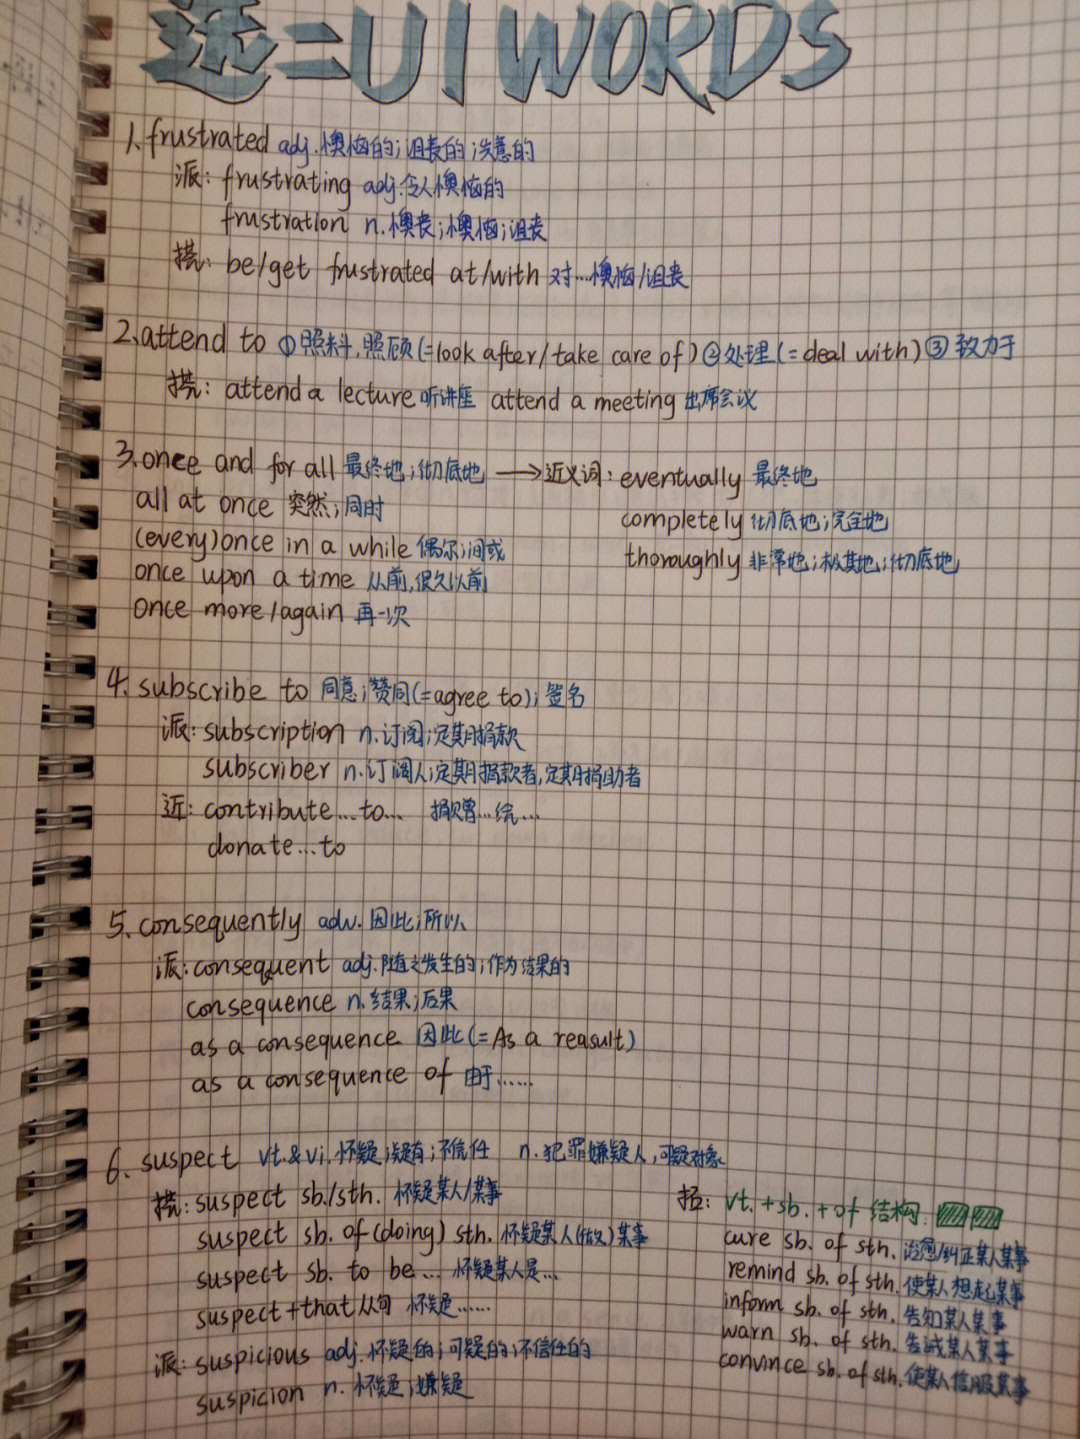 选二U1WORDS
1、frustrated adj.懊恼的;沮丧的;失意的
派: frustrating adj.令人懊恼的
frustration n.懊丧;懊恼;沮丧
搭: be/get frustrated at/with 对…懊恼/沮丧
2、attend to ①照料,照顾(=look after/take care of)②处理(=deal with)③致力于
搭: attend a lecture听讲座 attend a meeting 出席会议
3、once and for all 最终地;彻底地 →近义词: eventually 最终地
all at once 突然;同时
completely 彻底地;完全地
(every)once in a while 偶尔;间或
thoroughly 非常地;极其地;彻底地
once upon a time 从前,很久以前
once more/again 再一次
4、subscribe to 同意;赞同(=agree to);签名
派: subscription n.订阅;定期捐款
subscriber n.订阅人;定期捐款者,定期捐助者
近: contribute...to... 捐赠…给…
donate...to
5、consequently adv.因此;所以
派: consequent adj.随之发生的;作为结果的
consequence n.结果;后果
as a consequence 因此(=As a reasult)
as a consequence of 由于……
6、suspect vt.&vi.怀疑;疑有;不信任 n.犯罪嫌疑人,可疑对象
搭: suspect sb./sth. 怀疑某人/某事
拓: vt.+sb.+of 结构:
suspect sb. of (doing) sth. 怀疑某人(做)某事
cure sb. of sth. 治愈/纠正某人某事
suspect sb. to be... 怀疑某人是…
remind sb. of sth. 使某人想起某事
suspect+that从句 怀疑……
inform sb. of sth. 告知某人某事
warn sb. of sth. 告诫某人某事
派: suspicious adj.怀疑的;可疑的;不信任的
convince sb. of sth. 使某人信服某事
suspicion n.怀疑;嫌疑